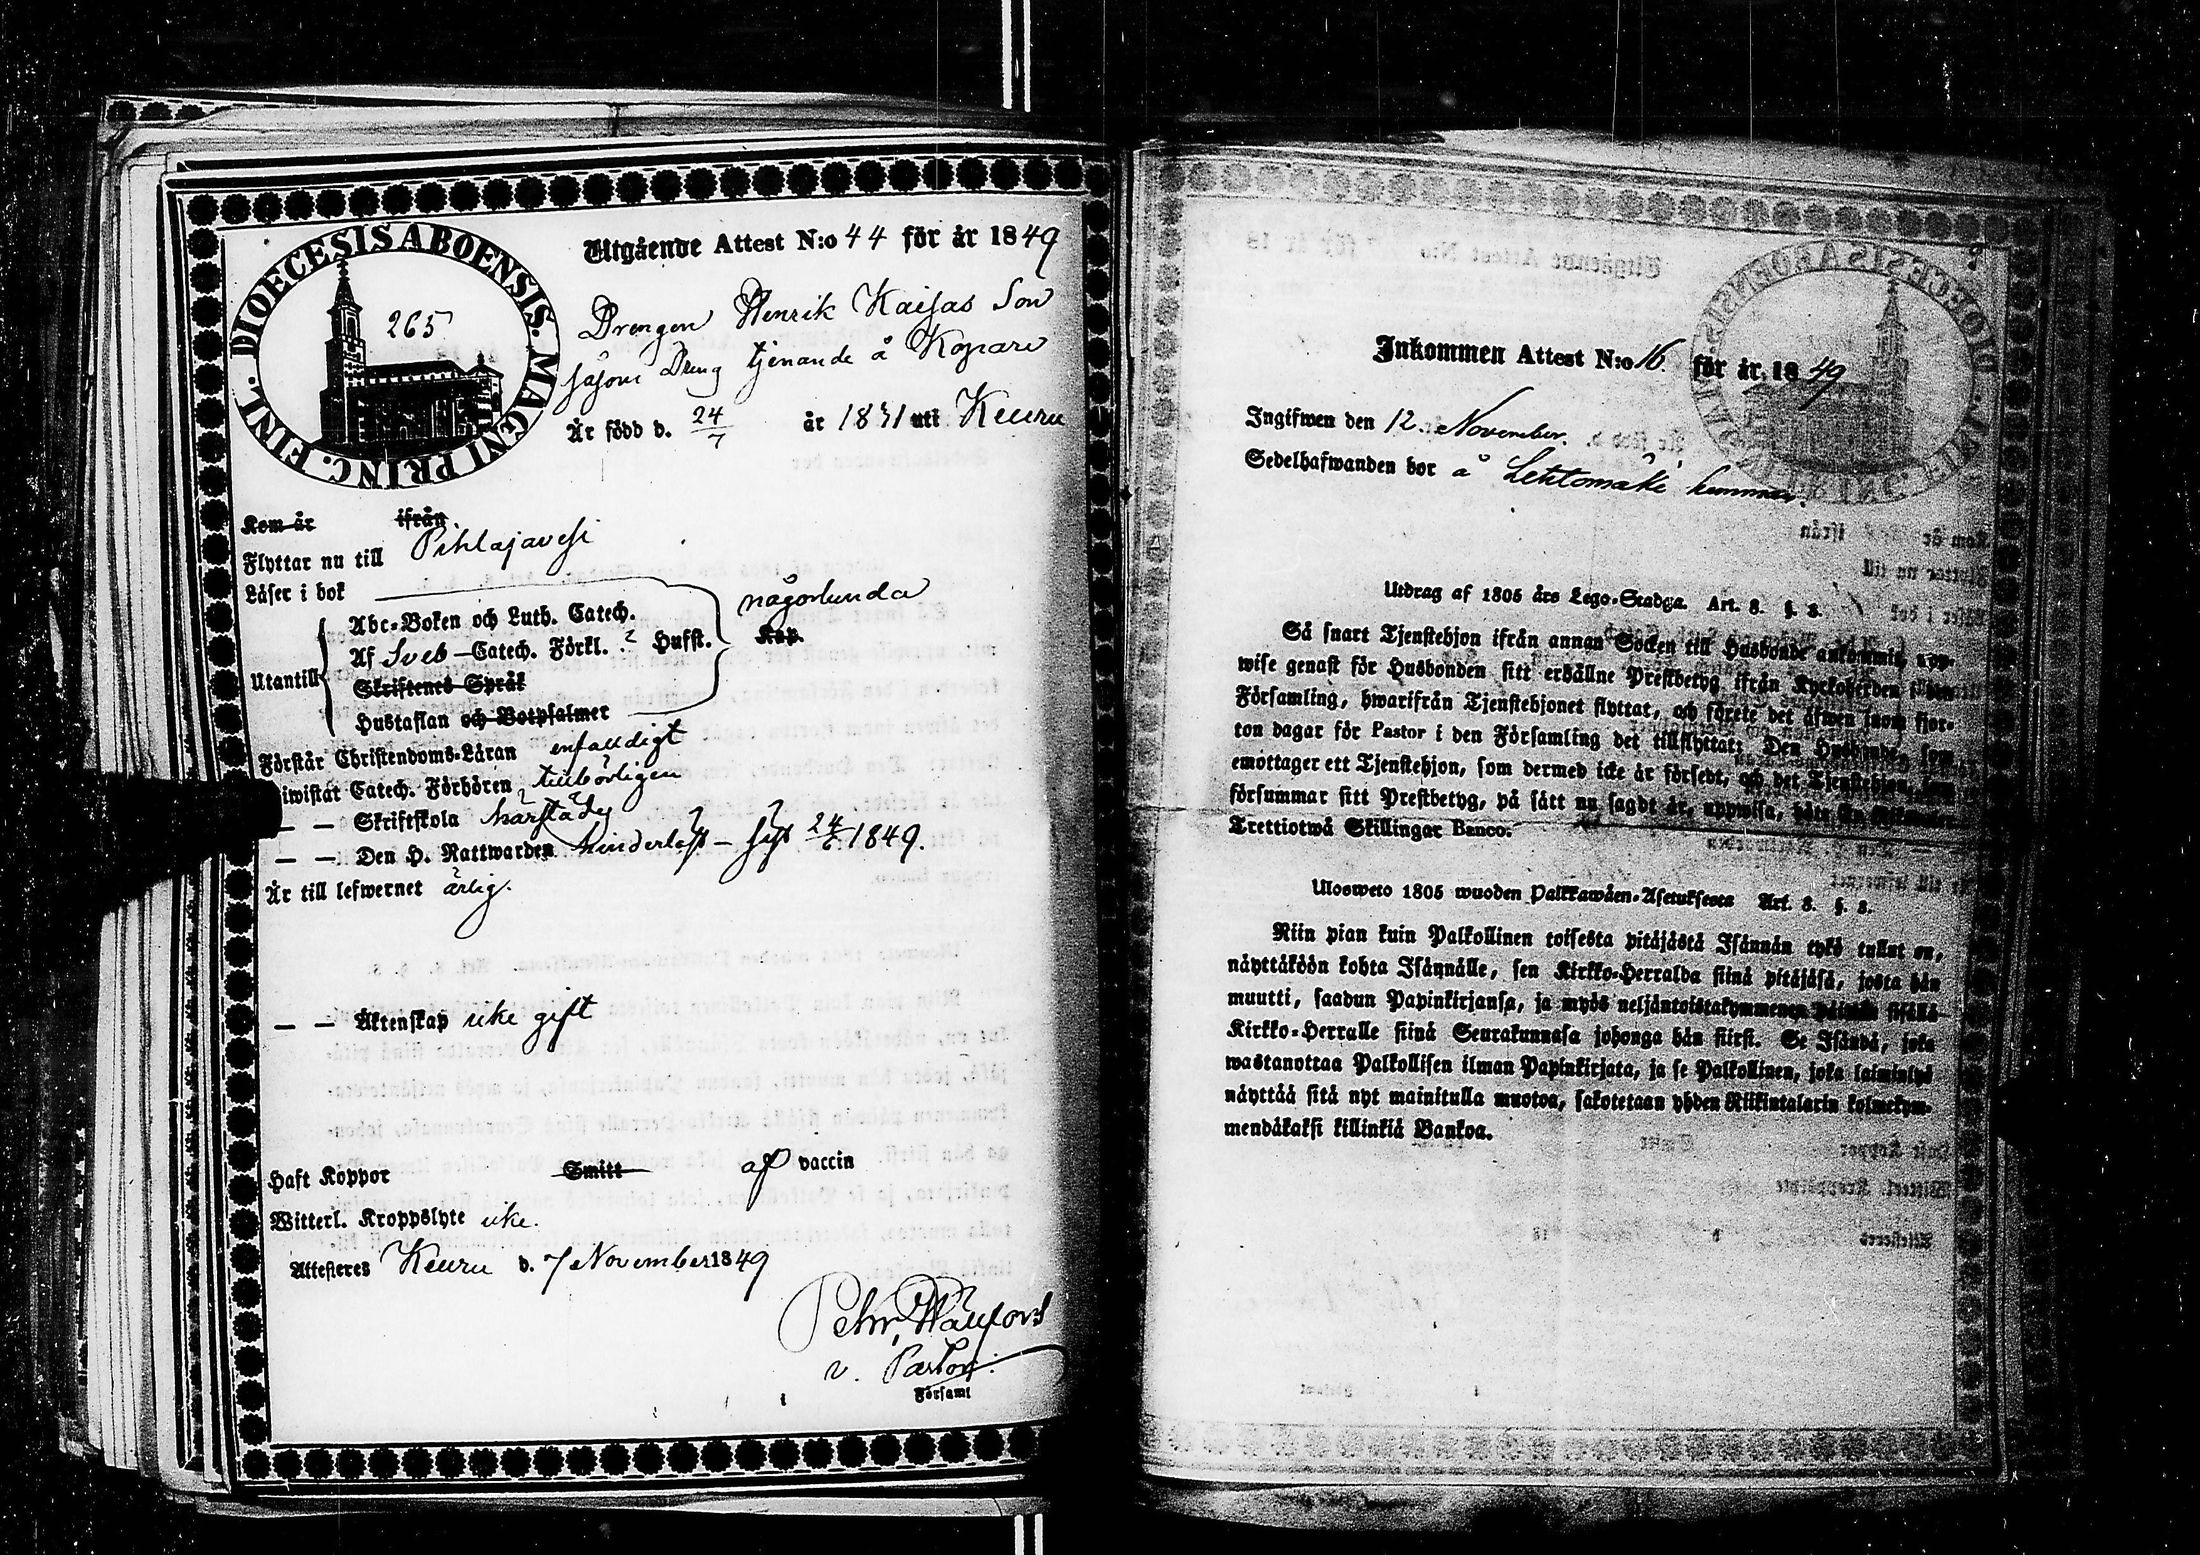 DIOECESIS ABOENSIS. MAGNI PRINC. FINL.
265
Utgående Attest N:o 44 för år 1849
Drengen Henrik Kaisas Son
såsom Dreng tjenande å Kopare
Är född d. 24/7 år 1831 uti Keuru
Kom år ifrån
Flyttar nu till Pihlajavesi
Läser i bok
någorlunda
Abc-Boken och Luth. Catech.
Af Sveb-Catech. Förkl. ? Hufst. Kap.
Utantill
Skriftenes Språk
Hustaflan och Botpsalmer
Förstår Christendoms-Läran enfaldigt
Biwistat Catech. Förhören tillbörligen
— — Skriftskola
— — Den H. Nattwarden hinderlöst — sist 24/6 1849.
Är till lefwernet ärlig.
— — Äktenskap icke gift
Haft Koppor Smitt af vaccin
Witterl. Kroppslyte icke.
Attesteras Keuru d. 7 November 1849
Pehr
v. Pastor.
Församl
Inkommen Attest N:o 16. för år 1849
Ingifwen den 12. November.
Sedelhafwanden bor å Lehtomäki hemman.
Utdrag af 1805 års Lego-Stadga. Art. 8. §. 8.
Så snart Tjenstehjon ifrån annan Socken till Husbonde ankommit, upp-
wise genast för Husbonden sitt erhållne Prestbetyg ifrån Kyrkoherden i den
Församling, hwarifrån Tjenstehjonet flyttat, och förete det äfwen inom fjor-
ton dagar för Pastor i den Församling det tillflyttat; Den Husbonde, som
emottager ett Tjenstehjon, som dermed icke är försedt, och det Tjenstehjon, som
försummar sitt Prestbetyg, på sätt nu sagdt är, uppwisa, böte En Riksdaler
Trettiotwå Skillingar Banco.
Ulosweto 1805 wuoden Palkkawäen-Asetuksesta Art. 8. §. 8.
Niin pian kuin Palkollinen toisesta pitäjästä Isännän tykö tullut on,
näyttäköön kohta Isännälle, sen Kirkko-Herralda siinä pitäjäsä, josta hän
muutti, saadun Papinkirjansa, ja myös neljäntoistakymmenen päiwän sisällä
Kirkko-Herralle siinä Seurakunnasa johonga hän siirsi. Se Isändä, joka
wastanottaa Palkollisen ilman Papinkirjata, ja se Palkollinen, joka laiminlyö
näyttää sitä nyt mainitulla muotoa, sakotetaan yhden Riikintalarin kolmekym-
mendäkaksi killinkiä Bankoa.